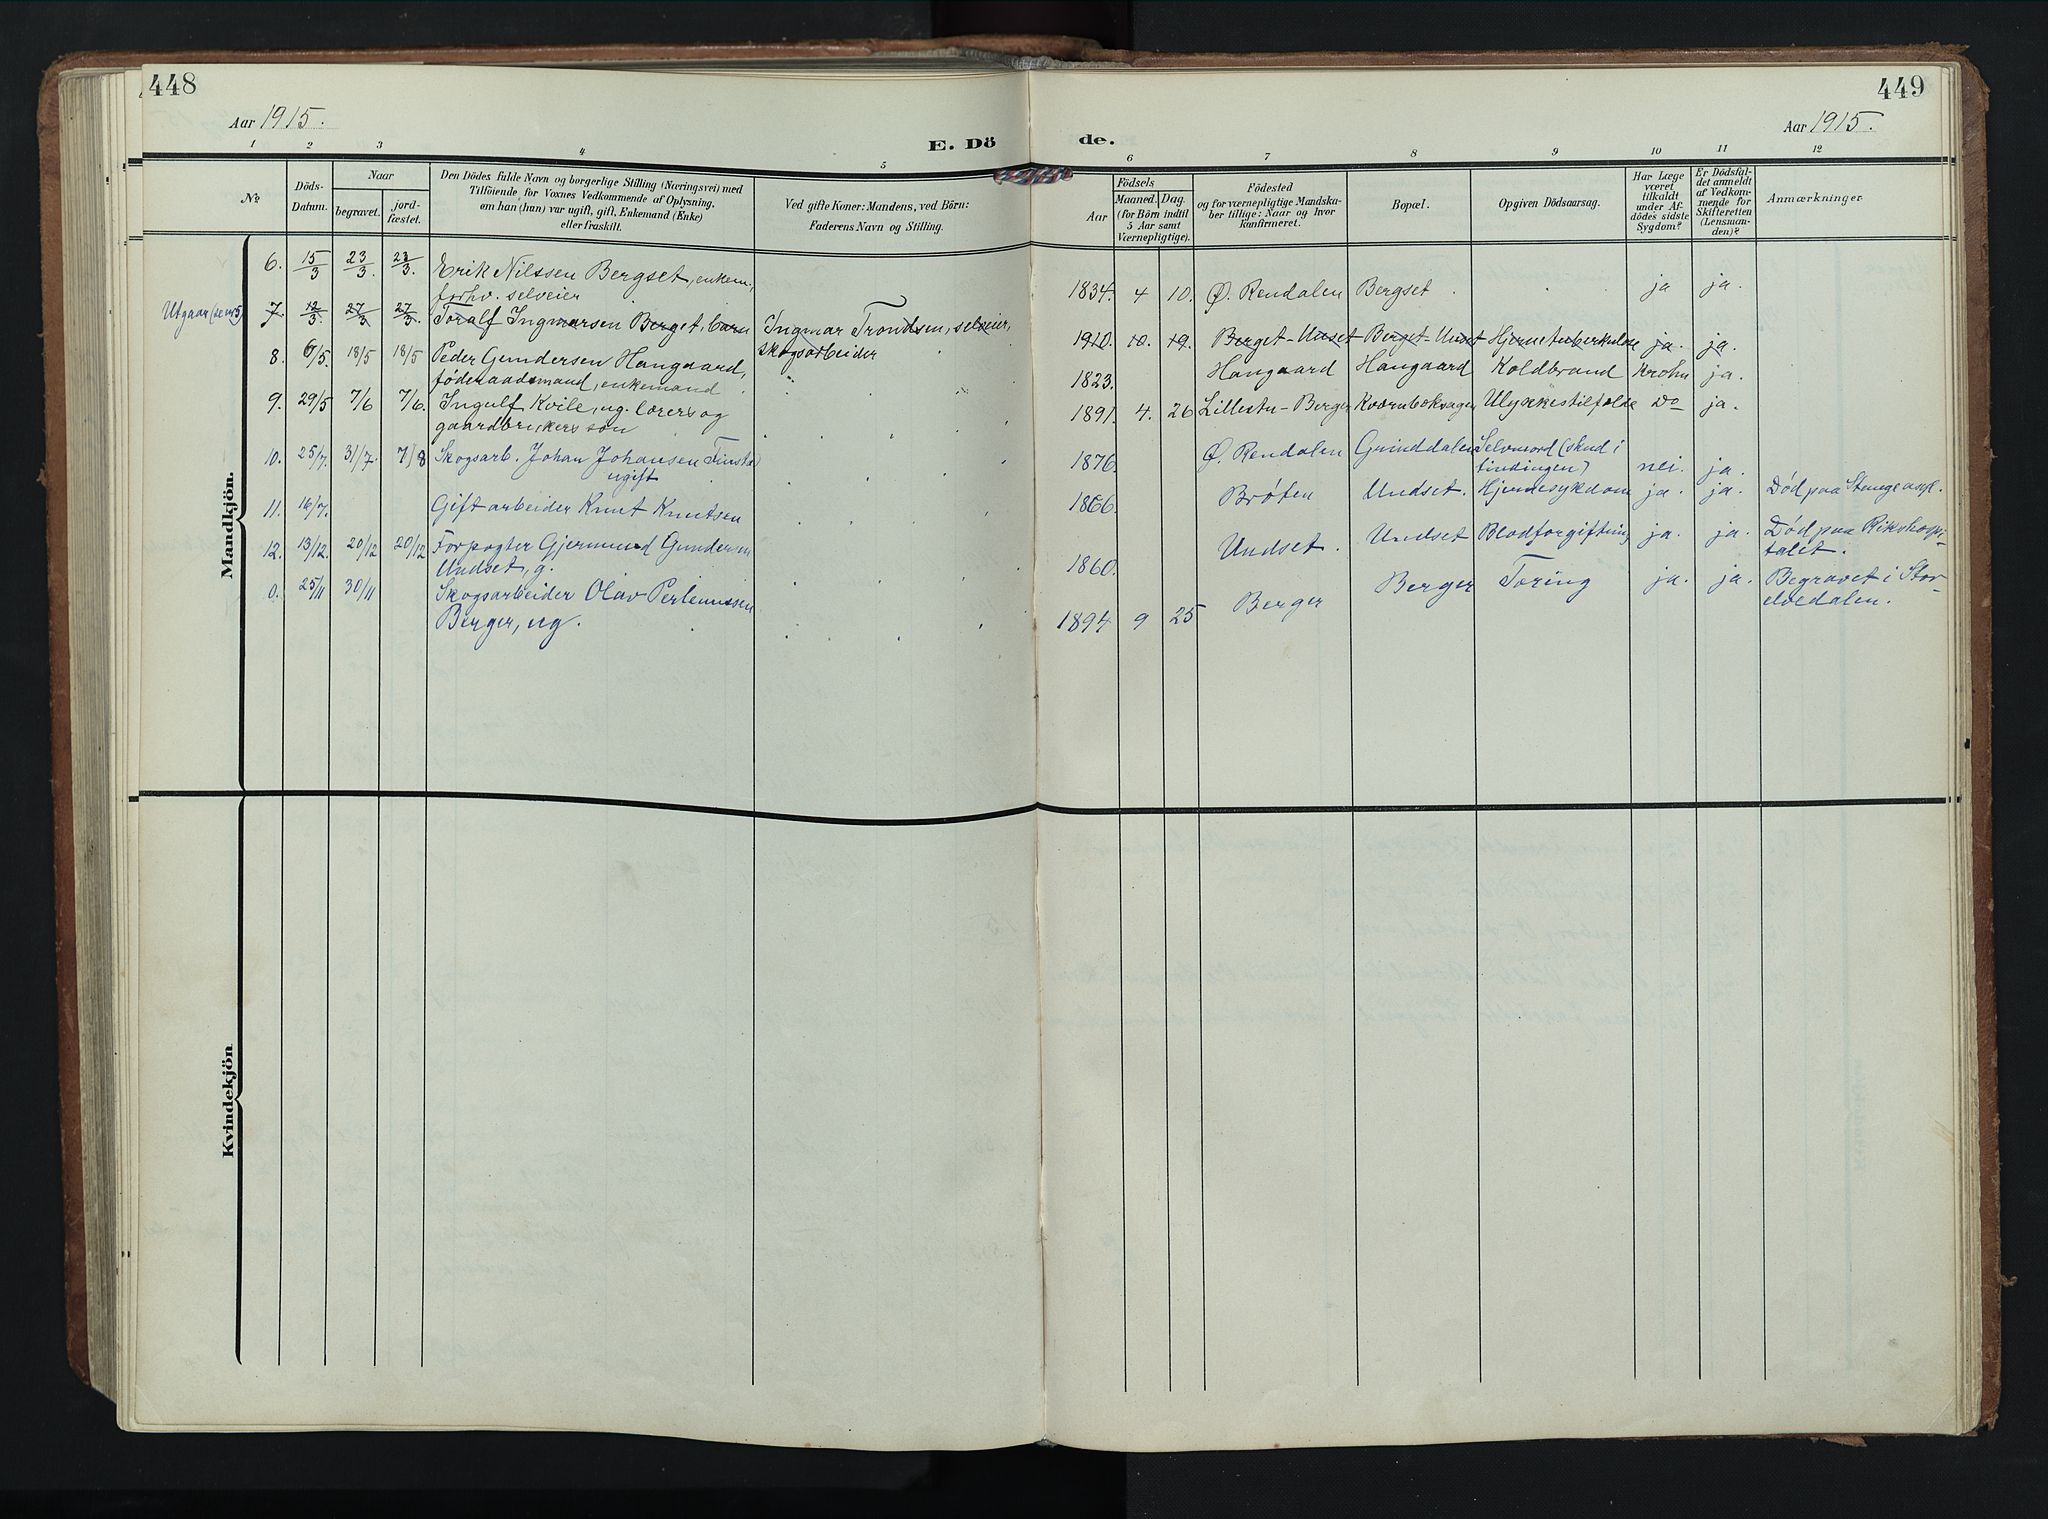 448
Aar 1915.
E. Dö
1 2 3 4 5
№
Döds-
Datum.
Naar
begravet.
jord-
fæstet.
Den Dödes fulde Navn og borgerlige Stilling (Næringsvei) med
Tilföiende for Voxnes Vedkommende af Oplysning,
om han (hun) var ugift, gift, Enkemand (Enke)
eller fraskilt.
Ved gifte Koner: Mandens, ved Börn:
Faderens Navn og Stilling.
Mandkjön.
6. 15/3 23/3. 23/3. Erik Nilssen Bergset, enkem.,
forhv. selveier
Utgaar (se nr 5) 7. 12/3. 27/3 27/3. Toralf Ingmarsen Berget, barn Ingmar Trondsen, selveier,
skogsarbeider
8. 6/5. 18/5 18/5 Peder Gundersen Hangaard,
føderaadsmand, enkemand
9. 29/5 7/6 7/6. Ingulf Kvile, ug. lærers og
gaardbrukers søn
10. 25/7. 31/7. 7/8 Skogsarb. Johan Johansen Finstad
ugift
11. 16/7. Gift arbeider Knut Knutsen
12. 13/12. 20/12 20/12 Forpagter Gjermund Gundersen
Undset, g.
0. 25/11 30/11 Skogsarbeider Olav
Berger, ug.
Kvindekjön
449
Aar 1915.
de.
6 7 8 9 10 11 12
Aar
Födsels
Maaned. Dag.
(for Börn indtil
5 Aar samt
Værnepligtige).
Födested
og for værnepligtige Mandska-
ber tillige: Naar og hvor
konfirmeret.
Bopæl.
Opgiven Dödsaarsag.
Har Læge
været
tilkaldt
under Af-
dödes sidste
Sygdom?
Er Dödsfal-
det anmeldt
af Vedkom-
mende for
Skifteretten
(Lensman-
den)?
Anmærkninger
1834. 4 10. Ø. Rendalen Bergset. ja ja.
1910. 10. 19. Berget-Unset Berget-Unset Hjernetuberkulose ja. ja.
1823. Hangaard Hangaard Koldbrand Krohn ja.
1891. 4. 26 Lillestu-Berger Kværnbækvagen Ulykkestilfælde Do ja.
1876. Ø. Rendalen Grinddalen Selvmord (skud i
tindingen) nei. ja.
1866. Brøten Undset. Hjernesykdom ja. ja. Død paa Stange asyl.
1860. Undset. Undset Blodforgiftning ja. ja. Død paa Rikshospi-
talet.
1894 9 25 Berger Berger Tæring ja. ja. Begravet i Stor-
elvedalen.